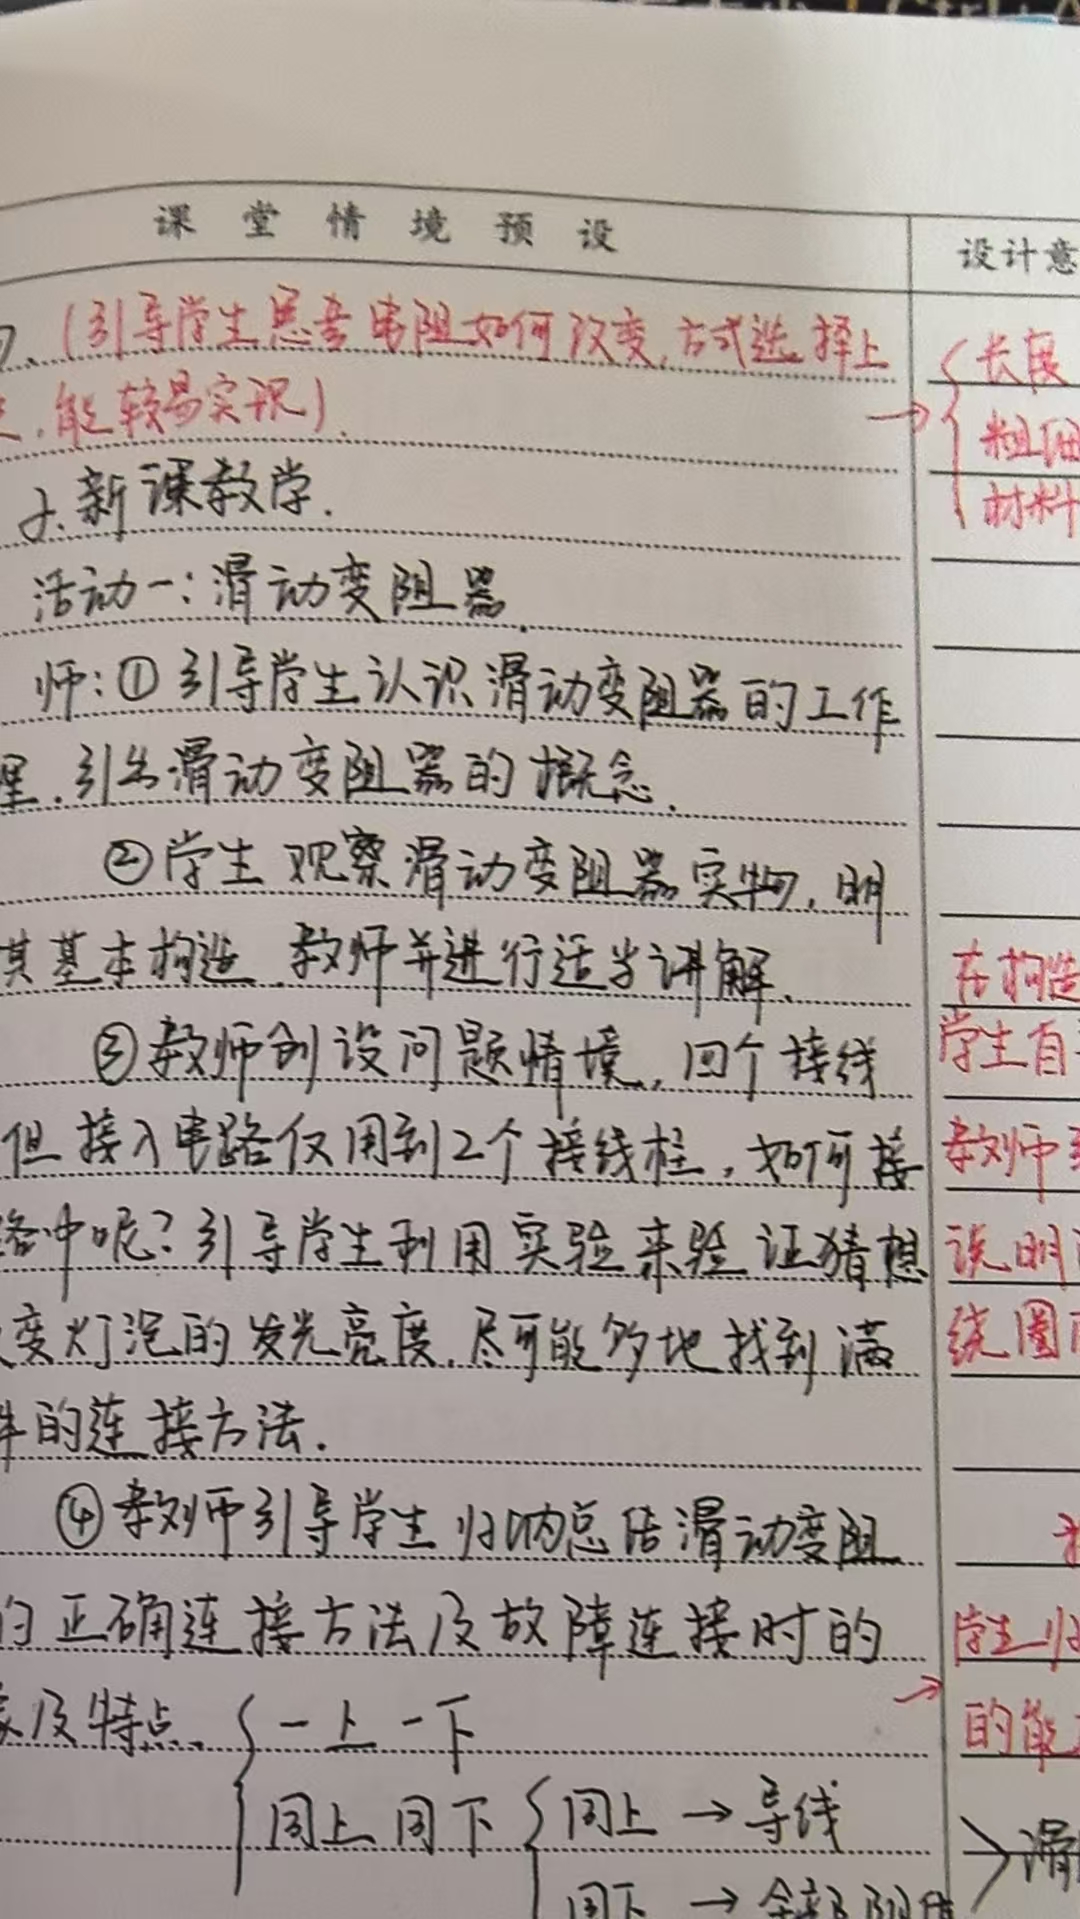 课堂情境预设
设计意
(引导学生思考电阻如何改变,方式选择上
→ 长度
能较易实现).
粗细
2.新课教学.
材料
活动一:滑动变阻器.
师:①引导学生认识滑动变阻器的工作
理.引出滑动变阻器的概念.
②学生观察滑动变阻器实物,明
其基本构造.教师并进行适当讲解.
在构造
③教师创设问题情境,四个接线
学生自
但接入电路仅用到2个接线柱,如何接
教师
路中呢?引导学生利用实验来验证猜想
说明
变灯泡的发光亮度.尽可能多地找到满
绕圈
件的连接方法.
④教师引导学生归纳总结滑动变阻
的正确连接方法及故障连接时的
学生归
象及特点. 一上一下
→ 的能
同上同下 同上→导线
滑
同下→全部阻值